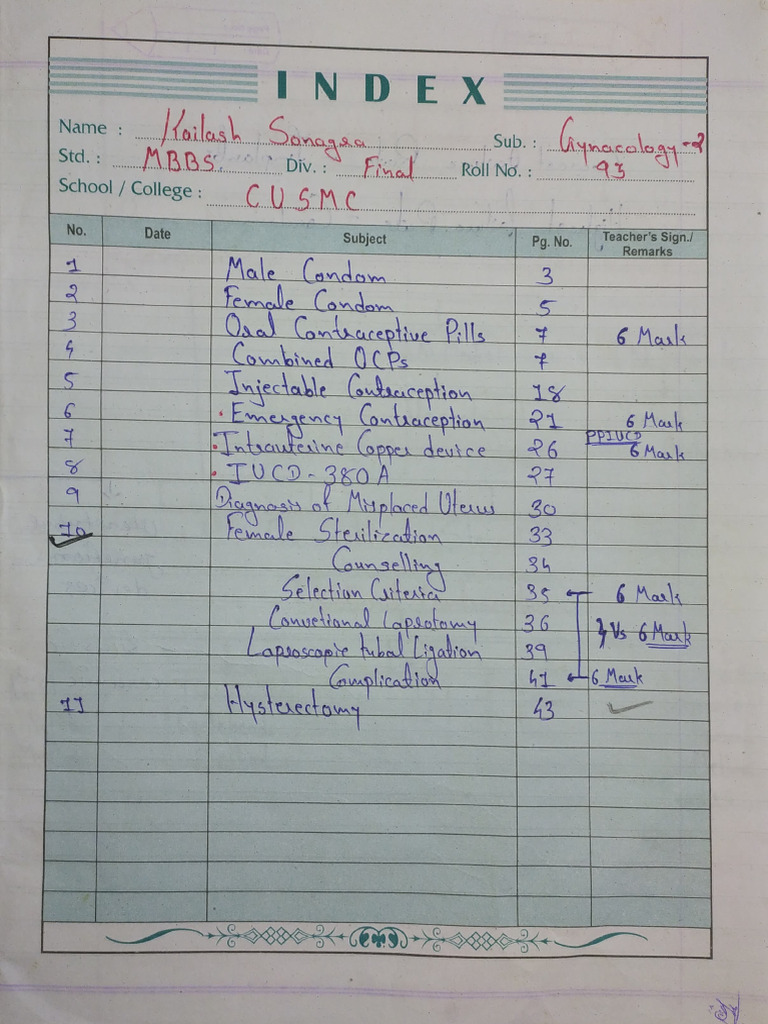 INDEX
Name : Kailash Sonagra Sub. : Gynacology-2
Std. : MBBS. Div. : Final Roll No. : 93
School / College : CUSMC
No. Date Subject Pg. No. Teacher's Sign./ Remarks
1 Male Condom 3
2 Female Condom 5
3 Oral Contraceptive Pills 7 6 Mark
4 Combined OCPs 7
5 Injectable Contraception 18
6 Emergency Contraception 21 6 Mark
7 Intrauterine Copper device 26 PPIUCD 6 Mark
8 IUCD-380A 27
9 Diagnosis of Misplaced Uterus 30
10 Female Sterilization 33
Counselling 34
Selection Criteria 35 6 Mark
Convetional Laprotomy 36 Vs 6 Mark
Laproscopic tubal Ligation 39
Complication 41 6 Mark
11 Hysterectomy 43